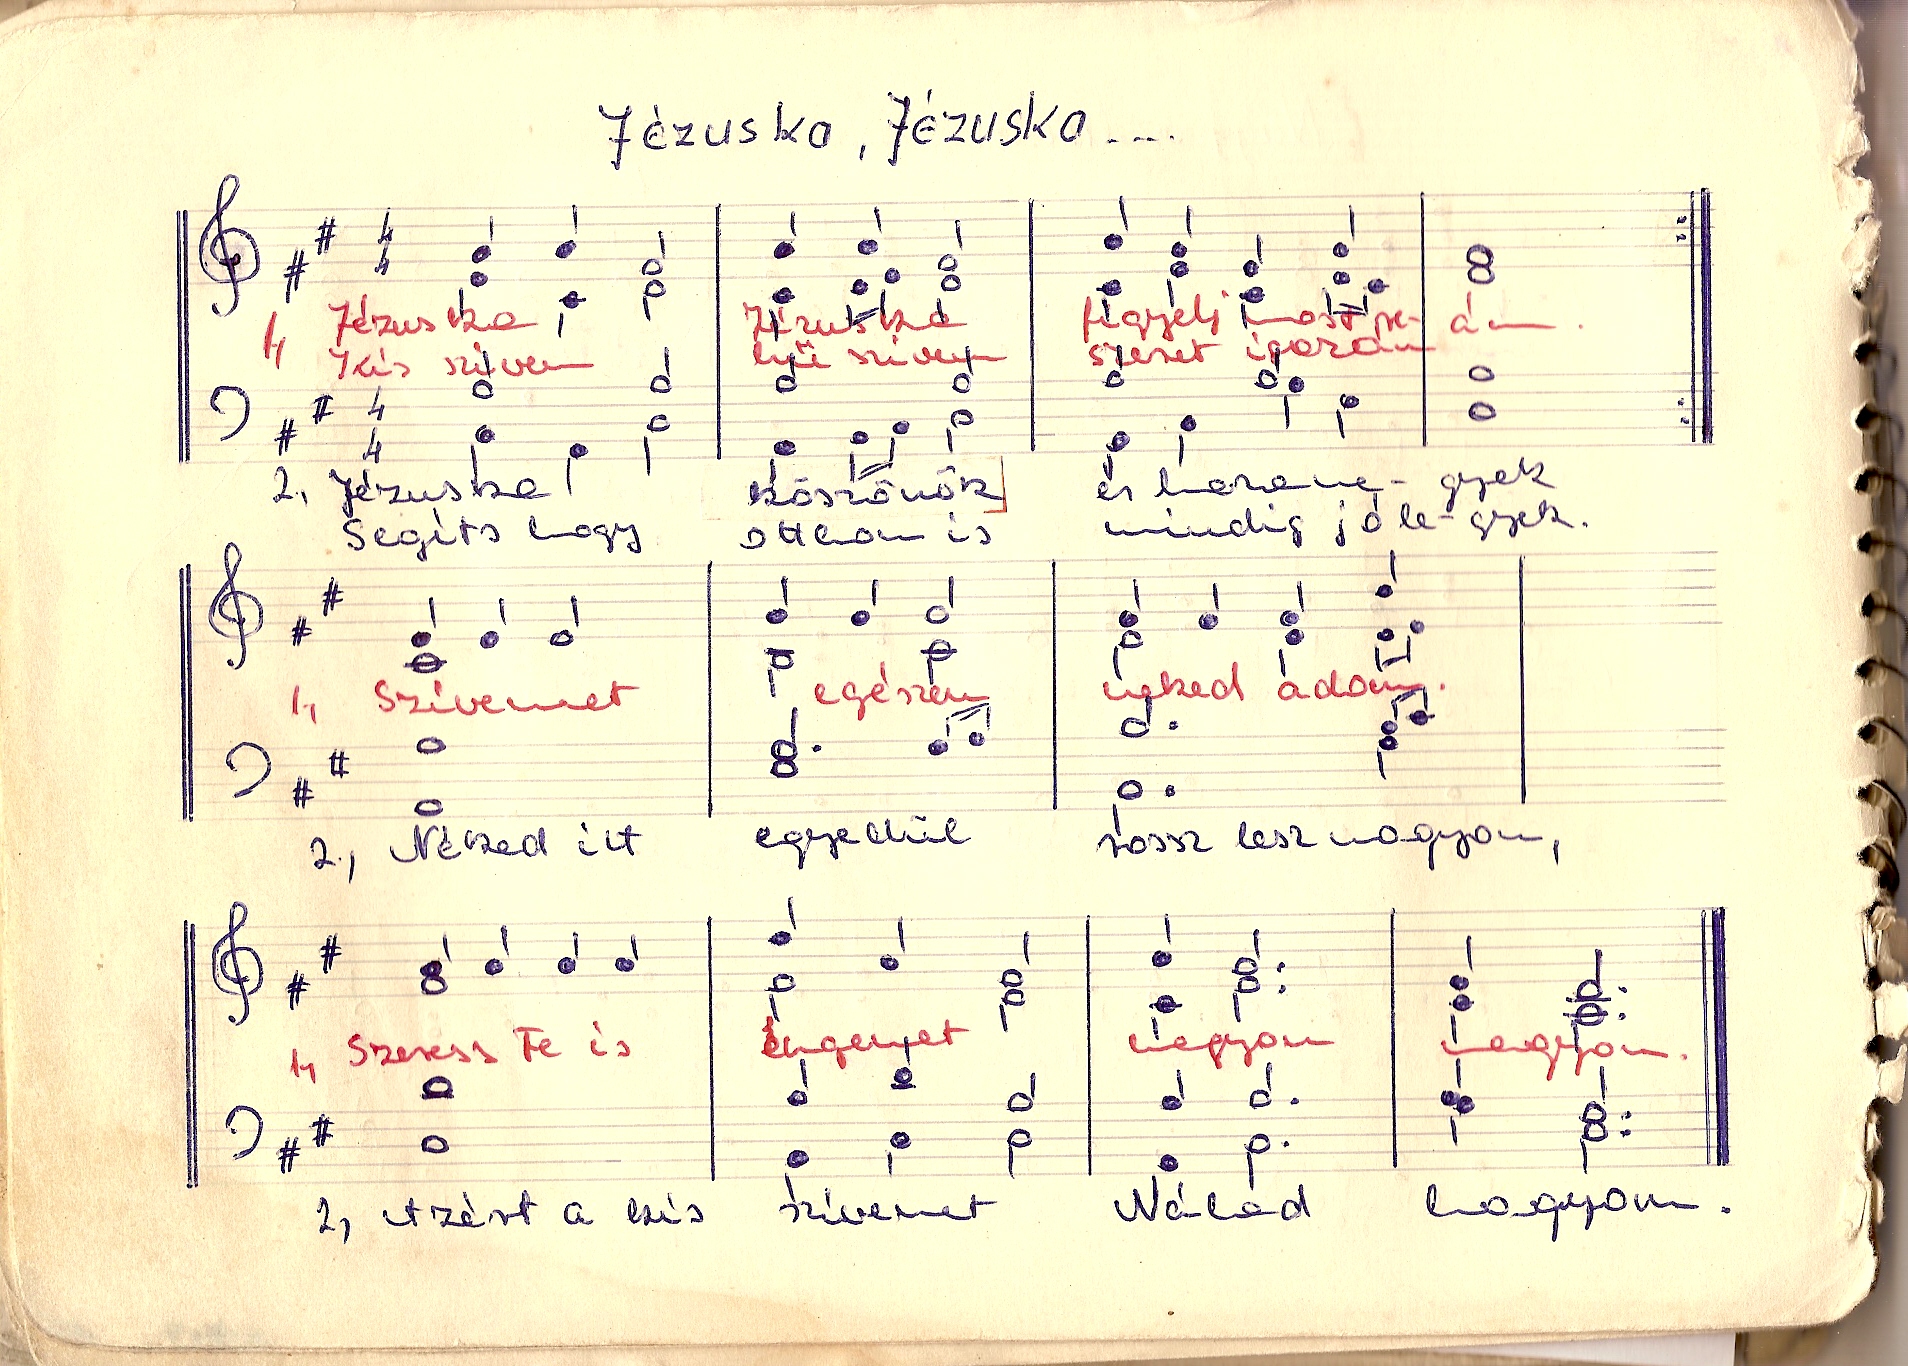 Jézuska, Jézuska ...
4 4
1, Jézuska Jézuska figyelj most re- ám.
Kis szivem hű szivem szeret igazán
4 4
2, Jézuska köszönök és haza me- gyek
Segits hogy otthon is mindig jó le- gyek.
1, Szivemet egészen neked adom.
2, Néked itt egyedül rossz lesz nagyon,
1, Szeress Te is engemet nagyon nagyon.
2, Azért a kis szivemet Nálad hagyom.